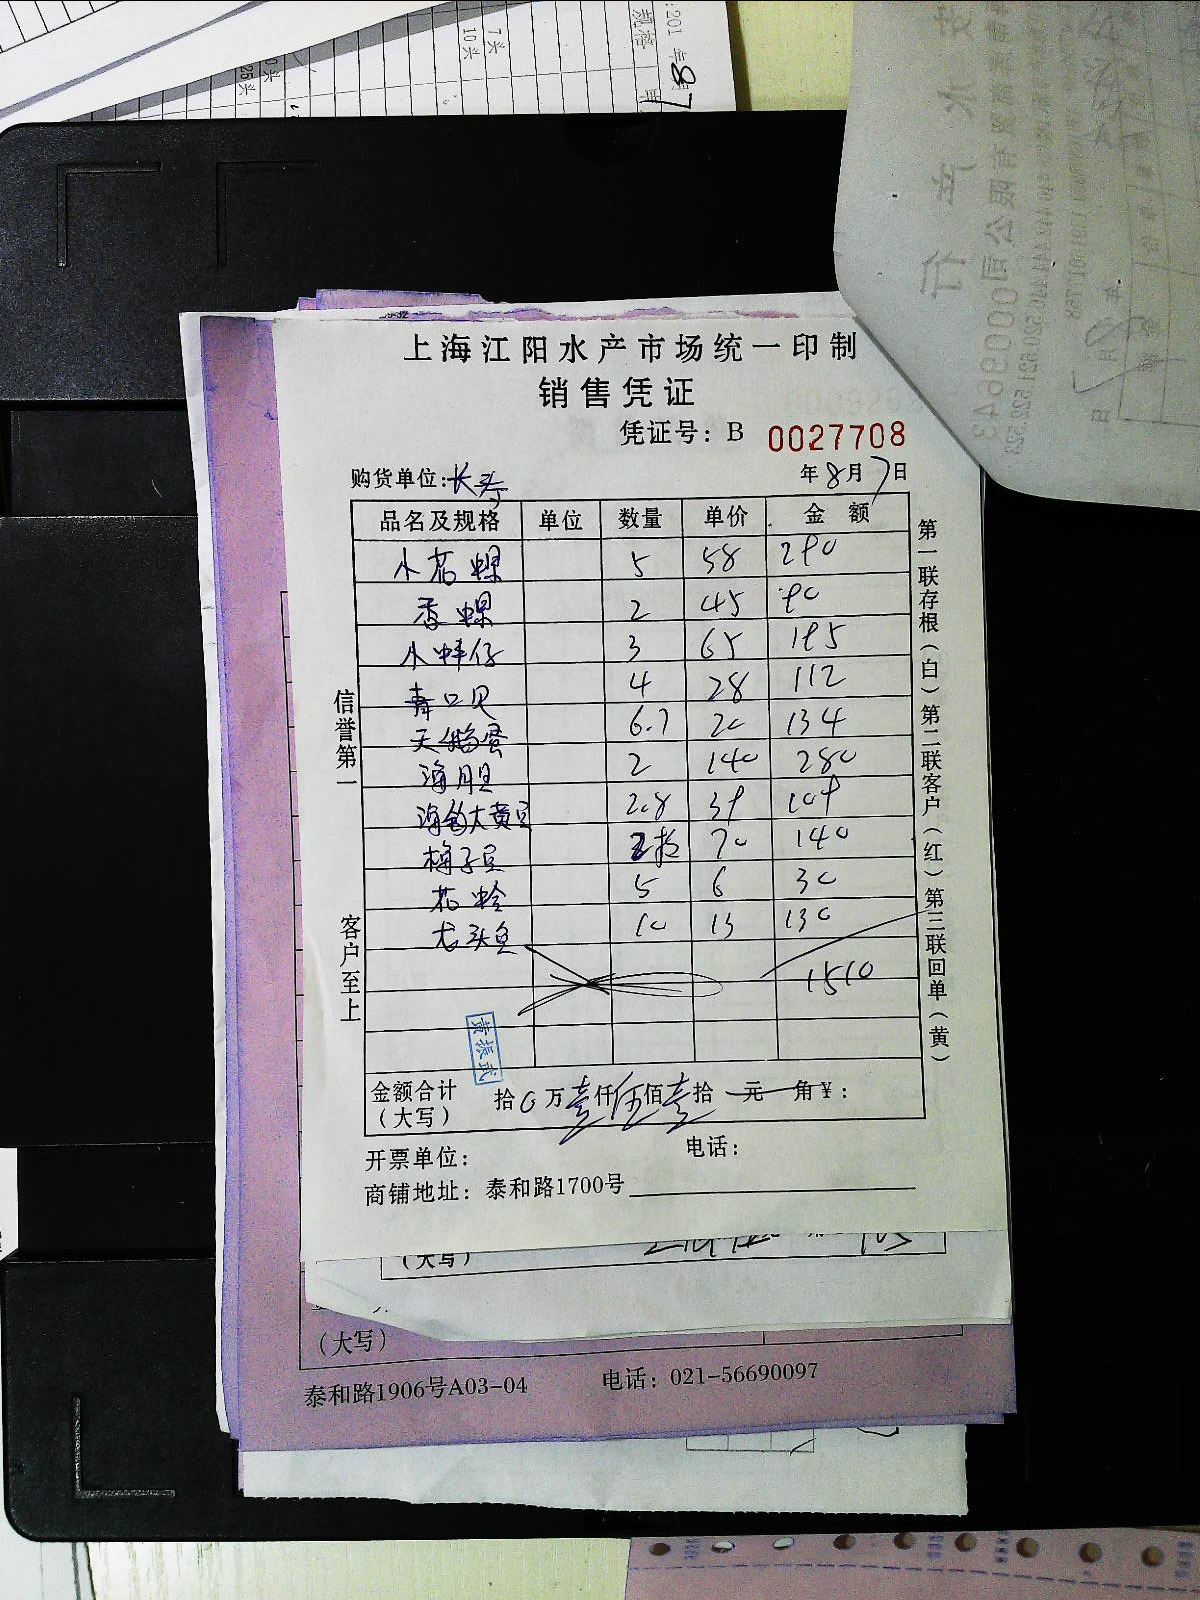 上海江阳水产市场统一印制
销售凭证
凭证号：B 0027708
购货单位:长寿 年8月7日
品名及规格 单位 数量 单价 金额
小花螺 5 58 290
香螺 2 45 90
小蚌仔 3 65 195
青口贝 4 28 112
天鹅蛋 6.7 20 134
海胆 2 140 280
2.8 39 109
70 140
花蛤 5 6 30
龙头鱼 10 13 130
1510
黄振武
金额合计（大写） 拾0万壹仟伍佰壹拾 元 角¥：
开票单位： 电话：
商铺地址：泰和路1700号
信誉第一
客户至上
第一联存根（白）第二联客户（红）第三联回单（黄）
（大写）
（大写）
泰和路1906号A03-04 电话：021-56690097